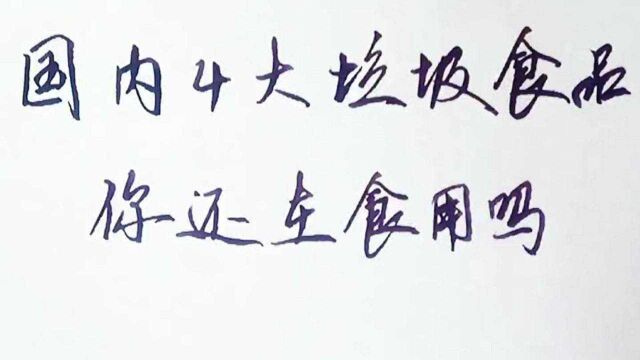 国内4大垃圾食品
你还在食用吗